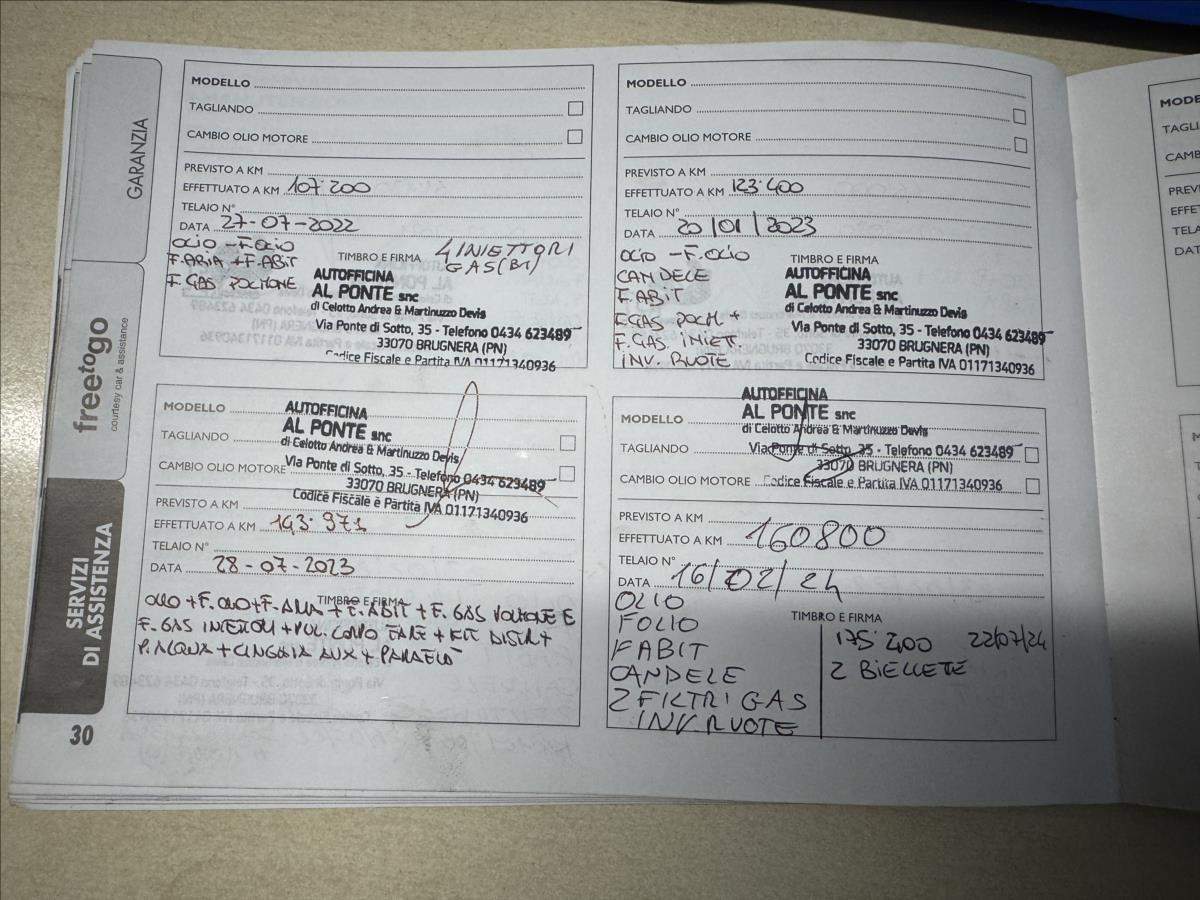 GARANZIA
freetogo
courtesy car & assistance
SERVIZI
DI ASSISTENZA
30
MODELLO
TAGLIANDO
CAMBIO OLIO MOTORE
PREVISTO A KM
EFFETTUATO A KM 107.200
TELAIO N°
DATA 27-07-2022
OLIO - F.OLIO
F.ARIA + F.ABIT
F. GAS POLMONE
4 INIETTORI
GAS (B1)
TIMBRO E FIRMA
AUTOFFICINA
AL PONTE snc
di Celotto Andrea & Martinuzzo Devis
Via Ponte di Sotto, 35 - Telefono 0434 623489
33070 BRUGNERA (PN)
Codice Fiscale e Partita IVA 01171340936
MODELLO
TAGLIANDO
CAMBIO OLIO MOTORE
PREVISTO A KM
EFFETTUATO A KM 123.400
TELAIO N°
DATA 20/01/2023
OLIO - F.OLIO
CANDELE
F.ABIT
F.GAS POLM +
F. GAS INIETT.
INV. RUOTE
TIMBRO E FIRMA
AUTOFFICINA
AL PONTE snc
di Celotto Andrea & Martinuzzo Devis
Via Ponte di Sotto, 35 - Telefono 0434 623489
33070 BRUGNERA (PN)
Codice Fiscale e Partita IVA 01171340936
MODELLO
TAGLIANDO
CAMBIO OLIO MOTORE
AUTOFFICINA
AL PONTE snc
di Celotto Andrea & Martinuzzo Devis
Via Ponte di Sotto, 35 - Telefono 0434 623489
33070 BRUGNERA (PN)
Codice Fiscale e Partita IVA 01171340936
PREVISTO A KM
EFFETTUATO A KM 143.971
TELAIO N°
DATA 28-07-2023
TIMBRO E FIRMA
OLIO + F.OLIO + F.ARIA + F.ABIT + F. GAS POLMONE E
F. GAS INIETTORI + PUL. CORPO FARF + KIT DISTR +
P. ACQUA + CINGHIA AUX +
AUTOFFICINA
AL PONTE snc
di Celotto Andrea & Martinuzzo Devis
Via Ponte di Sotto, 35 - Telefono 0434 623489
33070 BRUGNERA (PN)
Codice Fiscale e Partita IVA 01171340936
MODELLO
TAGLIANDO
CAMBIO OLIO MOTORE
PREVISTO A KM
EFFETTUATO A KM 160800
TELAIO N°
DATA 16/02/24
OLIO
FOLIO
FABIT
CANDELE
2 FILTRI GAS
INV.RUOTE
TIMBRO E FIRMA
175.200 22/07/24
2 BIELLETE